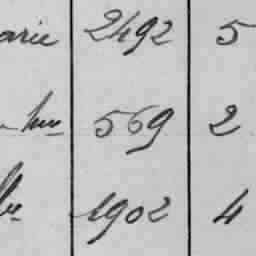 arie 2492 5
569 2
1902 4